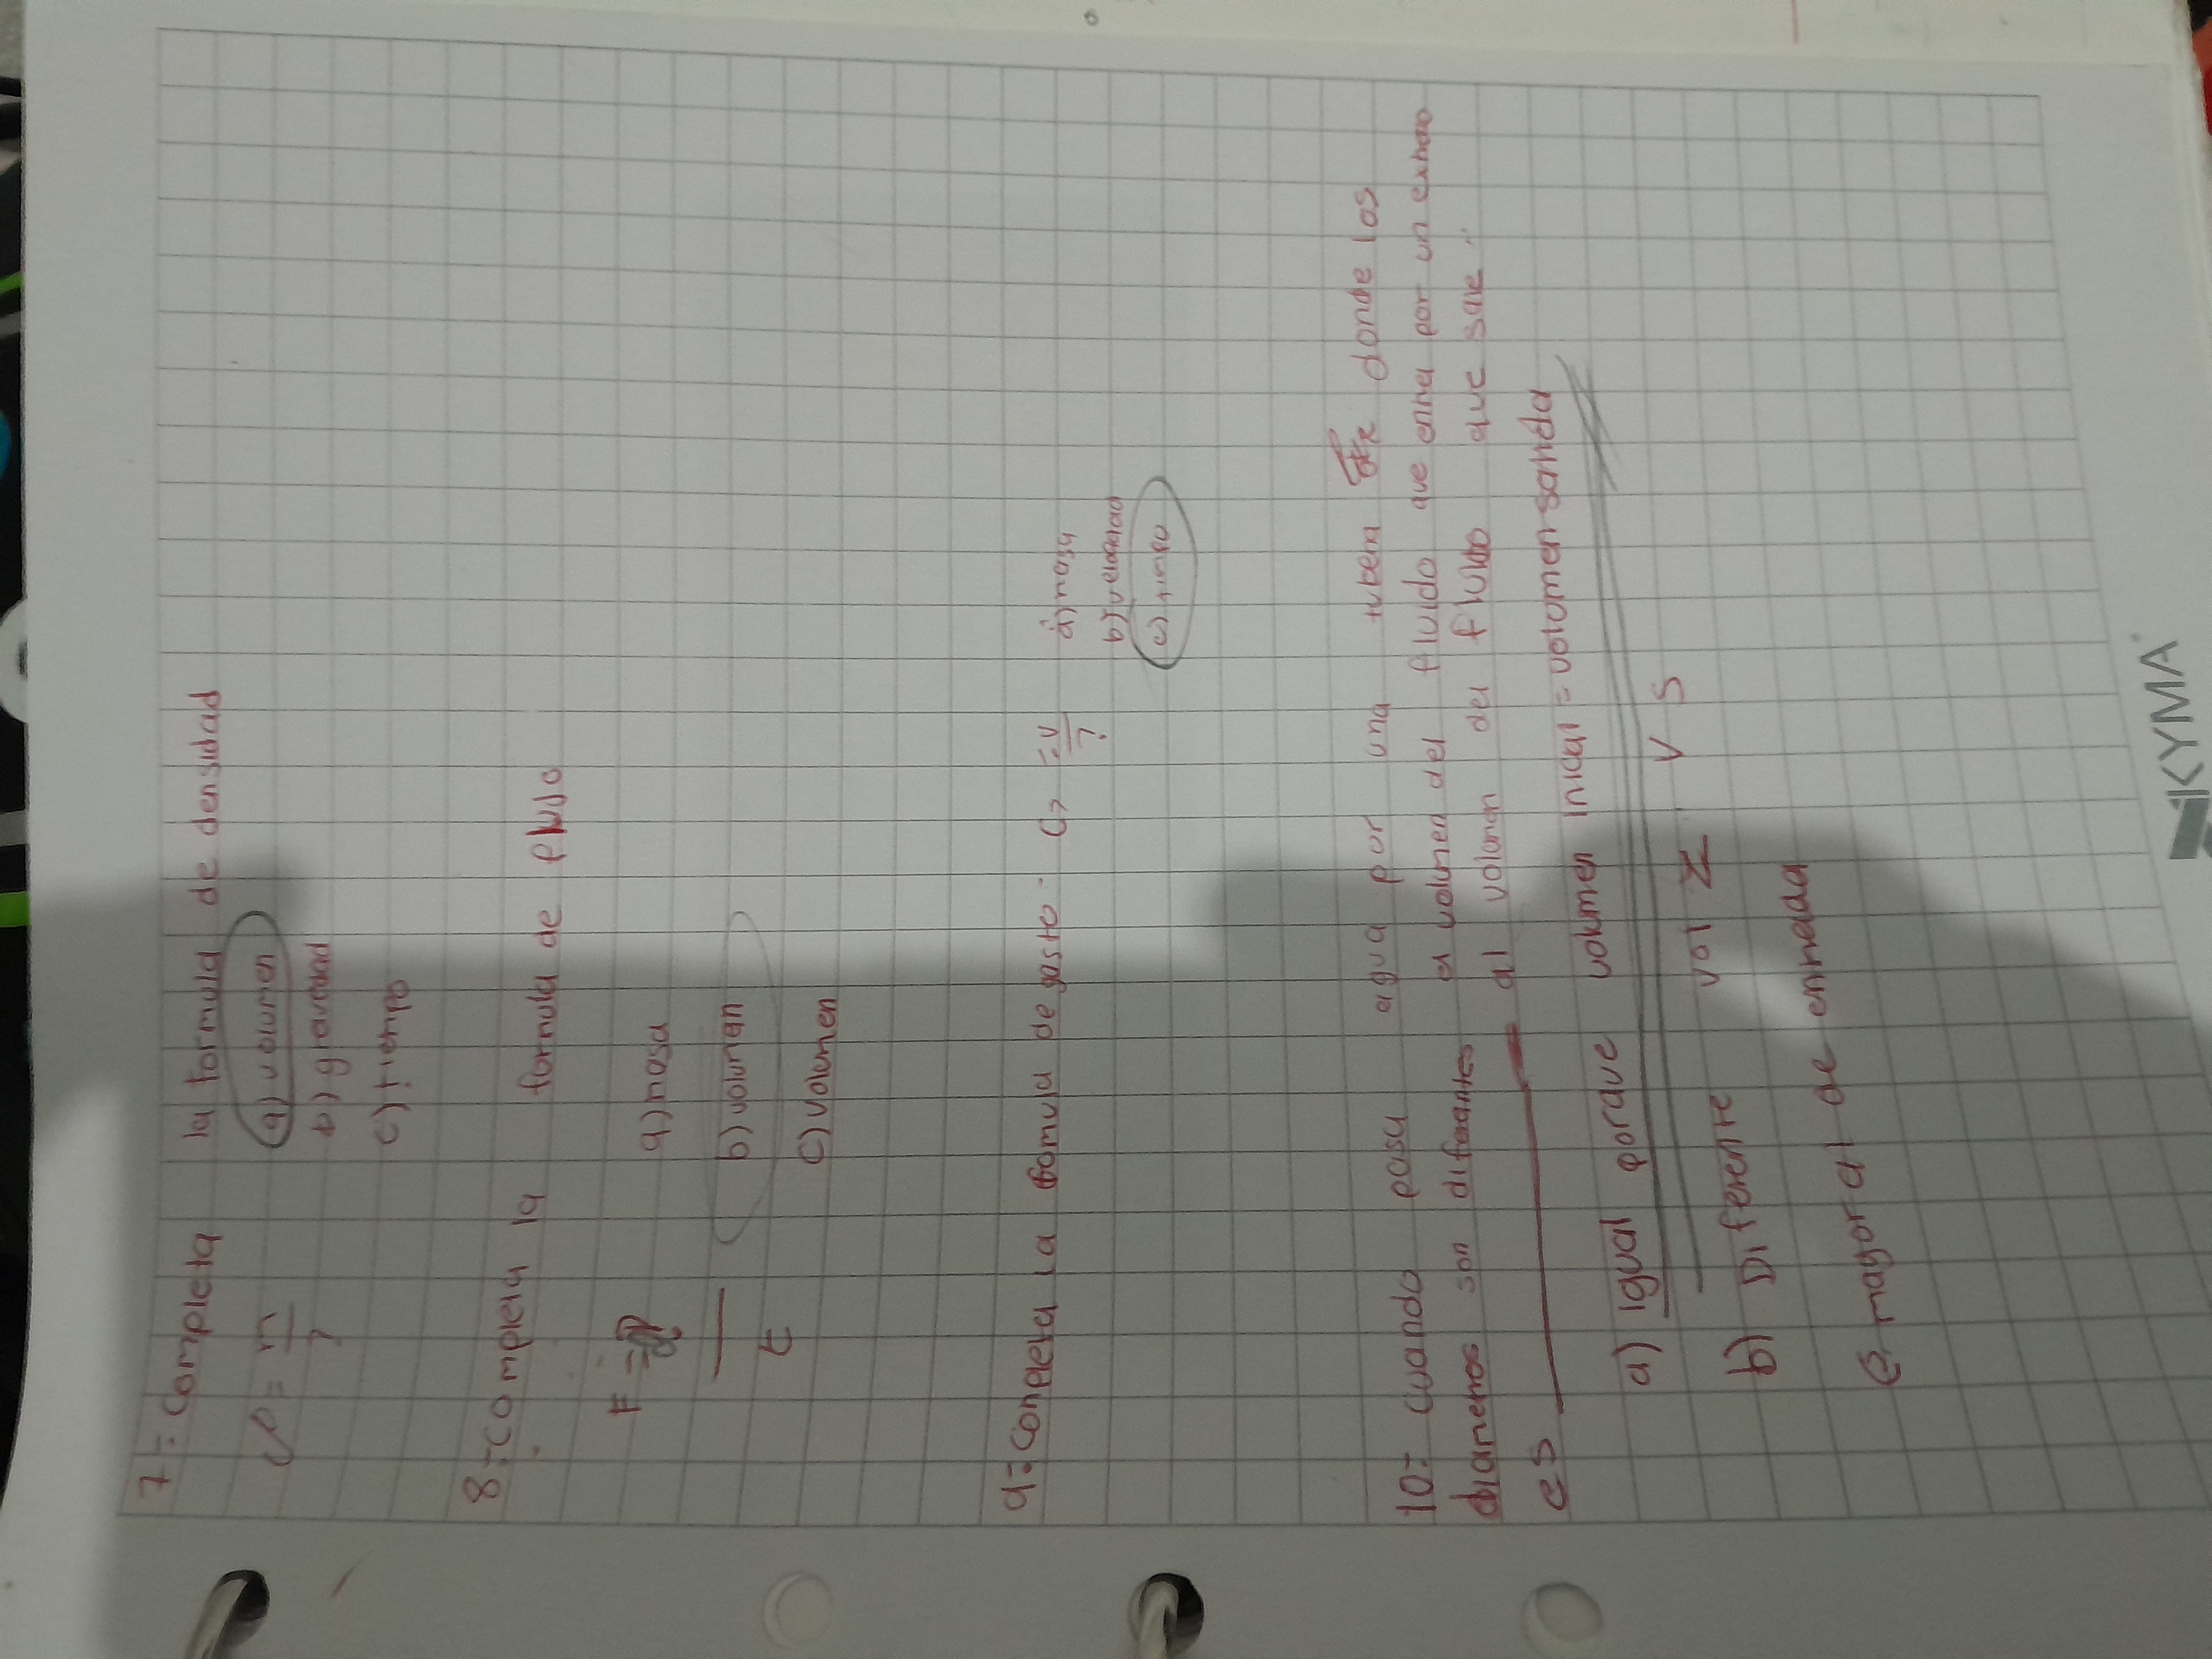 7-: Completa la formula de densidad
= m a) volumen
? b) gravedad
c) tiempo
8-: Completa la formula de flujo
F = a) masa
t b) volumen
c) volumen
9-: Completa la formula de gasto. G = v a) masa
? b) velocidad
c) tiempo
10-: cuando pasa agua por una tuberia donde los
diametros son diferentes el volumen del fluido que entra por un extremo
es al volumen del fluido que sale.
a) Igual porque volumen Inicial = volumen salida
V S
b) Diferente vol
c) mayor al de entrada
KYMA